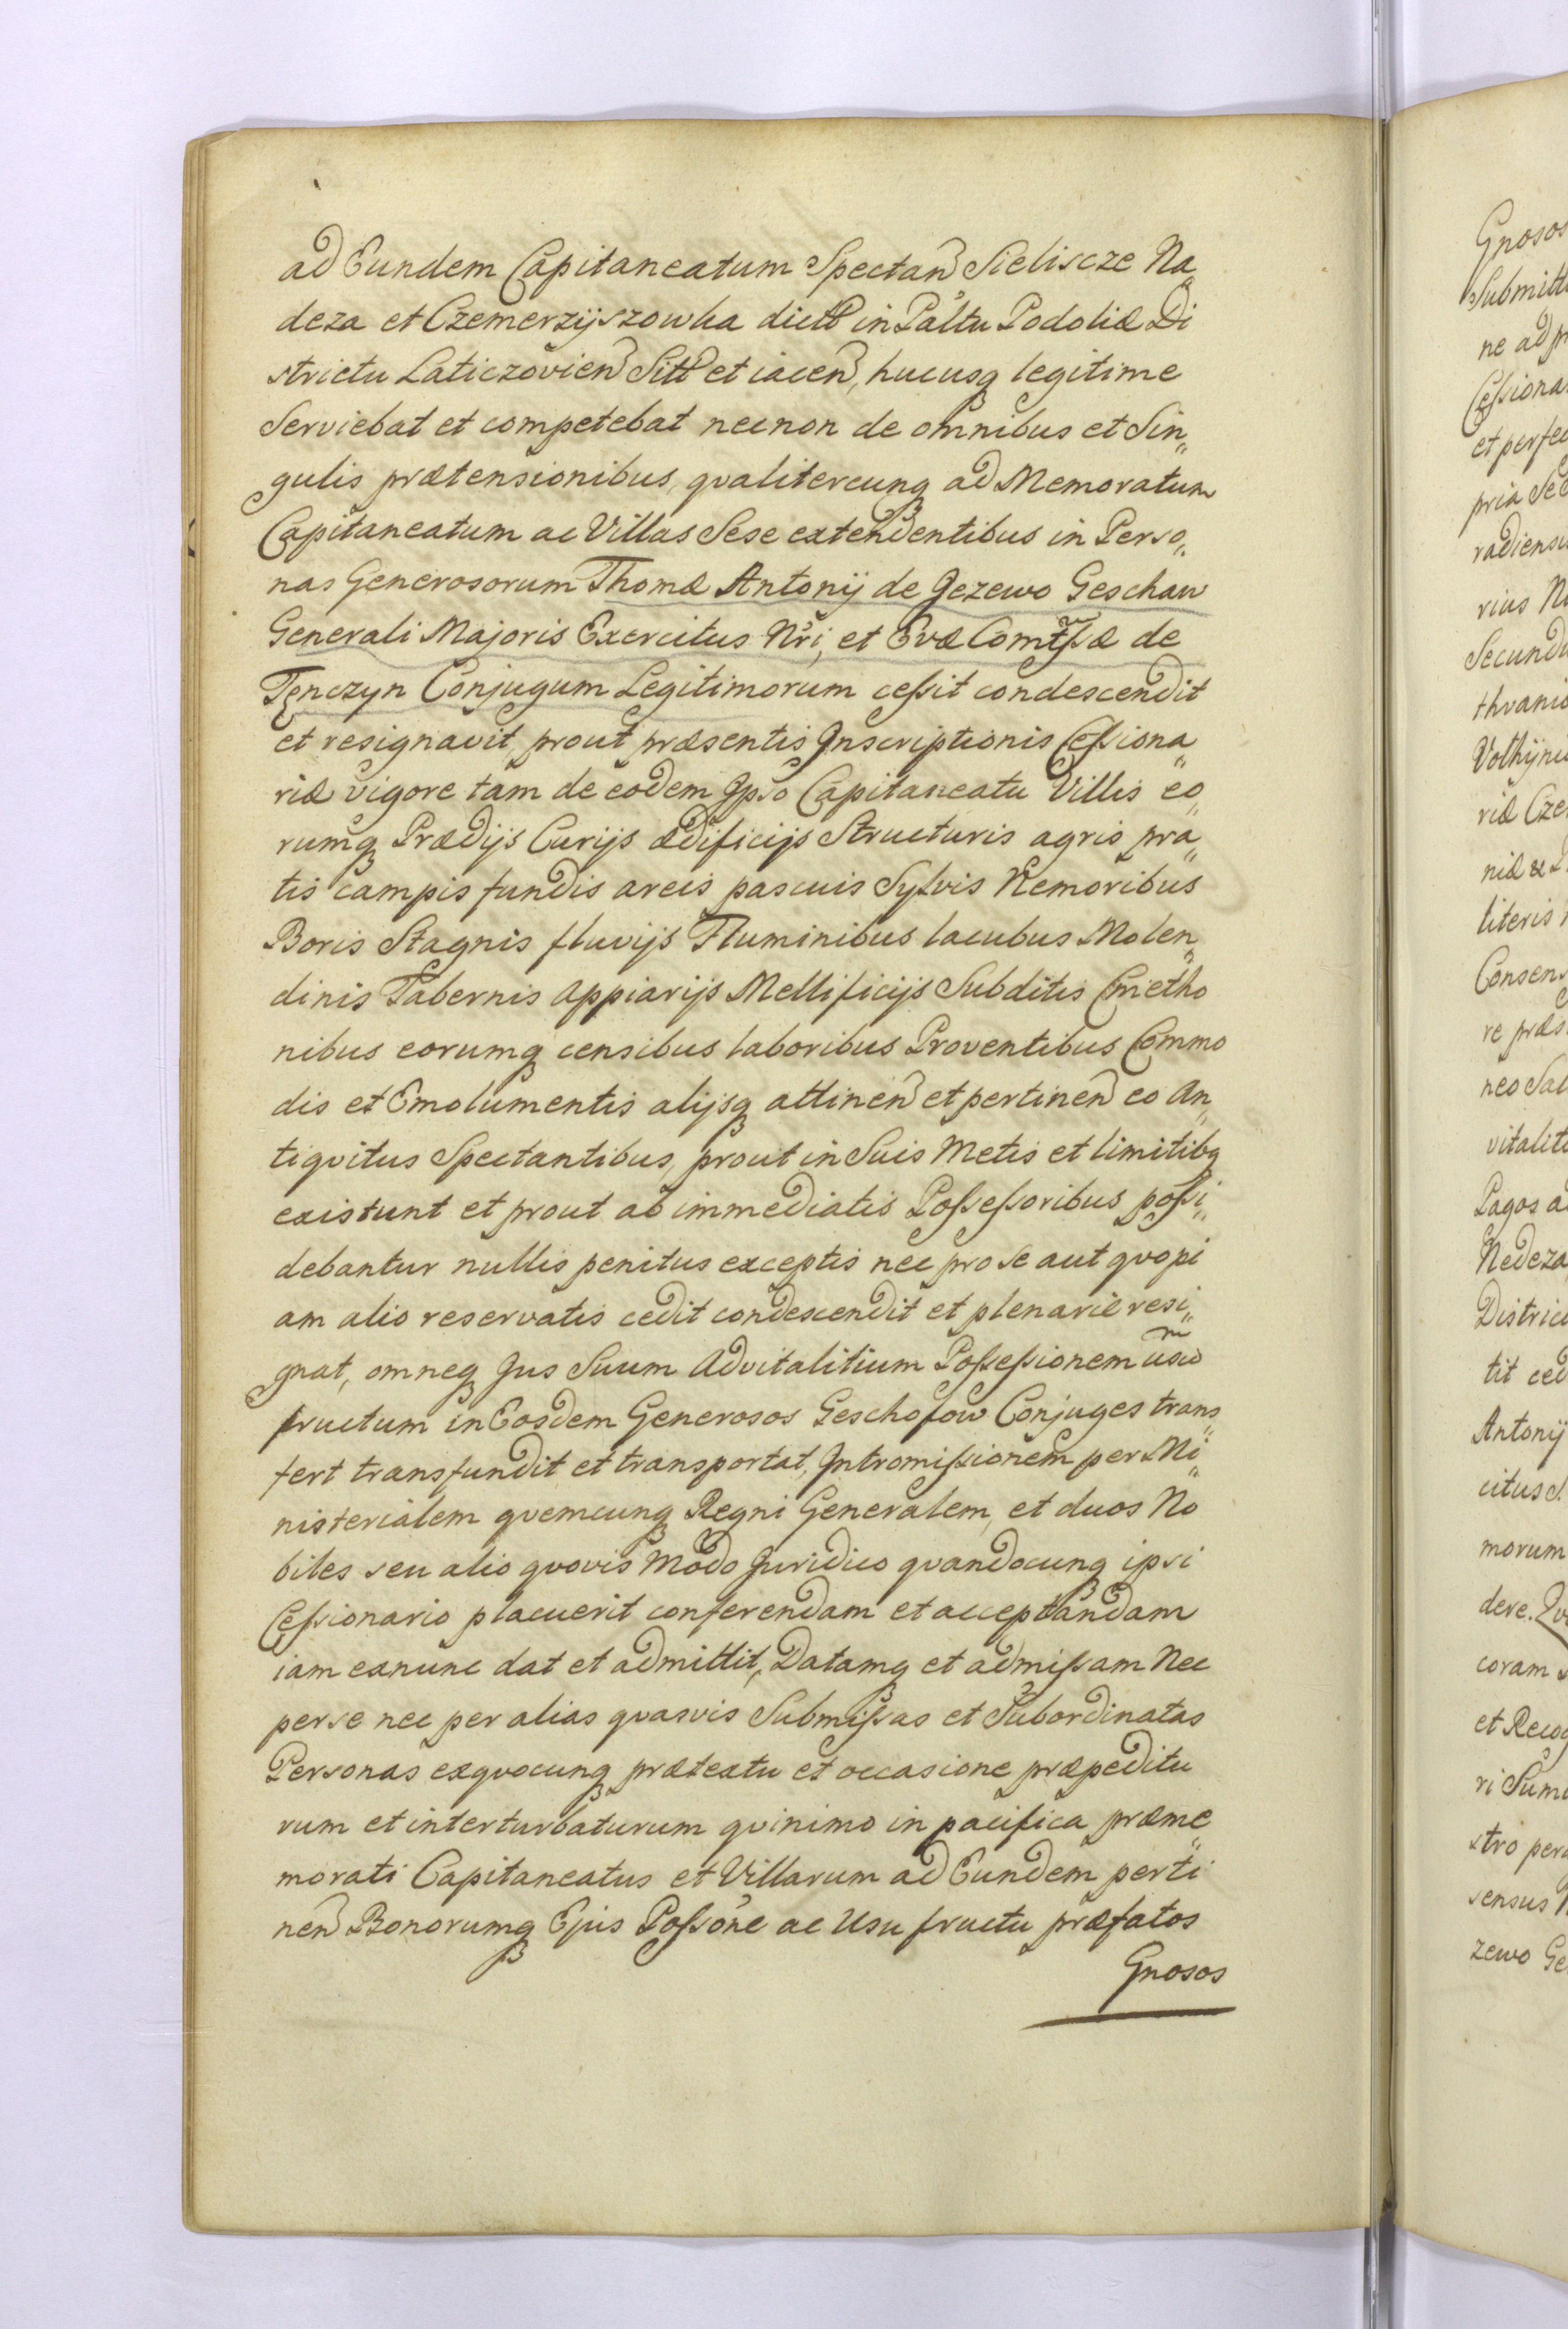 ad Eundem Capitaneatum Spectan Sieliscze Na„
deza et Czemerzijszowka dictt in Paltu Podoliæ Di
strictu Laticzovien Sitt et iacen, hucusq legitime
Serviebat et competebat necnon de omnibus et Sin„
gulis prætensionibus, qvalitercunq ad Memoratum
Capitaneatum ac Villas Sese extendentibus in Perso„
nas Generosorum Thomæ Antonij de Gezewo Geschaw
Generali Majoris Exercitus Nri, et Evæ Comtßæ de
Tęnczyn Conjugum Legitimorum ceßit condescendit
et resignavit, prout præsentis Inscriptionis Ceßiona„
riæ vigore tam de eodem Ipso Capitaneatu Villis eo„
rumq Prædijs Curijs ædificijs Structuris agris pra„
tis campis fundis areis pascuis Sylvis Nemoribus
Boris Stagnis fluvijs Fluminibus lacubus Molen„
dinis Tabernis Appiarijs Mellificijs Subditis Cmetho
nibus eorumq censibus laboribus Proventibus Commo
dis et Emolumentis alijsq attinen et pertinen eo An„
tiqvitus Spectantibus, prout in Suis Metis et limitibq
existunt et prout ab immediatis Poßeßoribus poßi„
debantur nullis penitus exceptis nec pro se aut qvopi
am alio reservatis cedit condescendit et plenariè resi„
gnat, omneq Jus Suum Advitalitium Poßeßionem usu
fructum in Eosdem Generosos Geschofow Conjuges trans„
fert transfundit et transportat, Intromißionem per Mi„
nisterialem qvemcunq Regni Generalem, et duos No
biles seu alio qvovis Modo Juridico qvandocunq ipsi
Ceßionario placuerit conferendam et acceptandam
iam exnunc dat et admittit, Datamq et admißam Nec
per se nec per alias qvasvis Submißas et Subordinatas
Personas exqvocunq prætextu et occasione præpeditu
rum et interturbaturum qvinimo in pacifica præme„
morati Capitaneatus et Villarum ad Eundem perti
nen Bonorumq Ejus Poßone ac Usu fructu præfatos
Gnosos
Gnosos
Submitt
ne ad
Ceßiona
et perfec
pria
radiensi
rius
Secundu
thvanic
Volhijni
riæ Cze
niæ &
literis
Consens
re præs
neo Sal
vitalit
Pagos a
Nedeza
District
tit ced
Antonij
citus
morum
dere.
coram
et Recog
ri Sum
stro per
sensus
zewo Ge